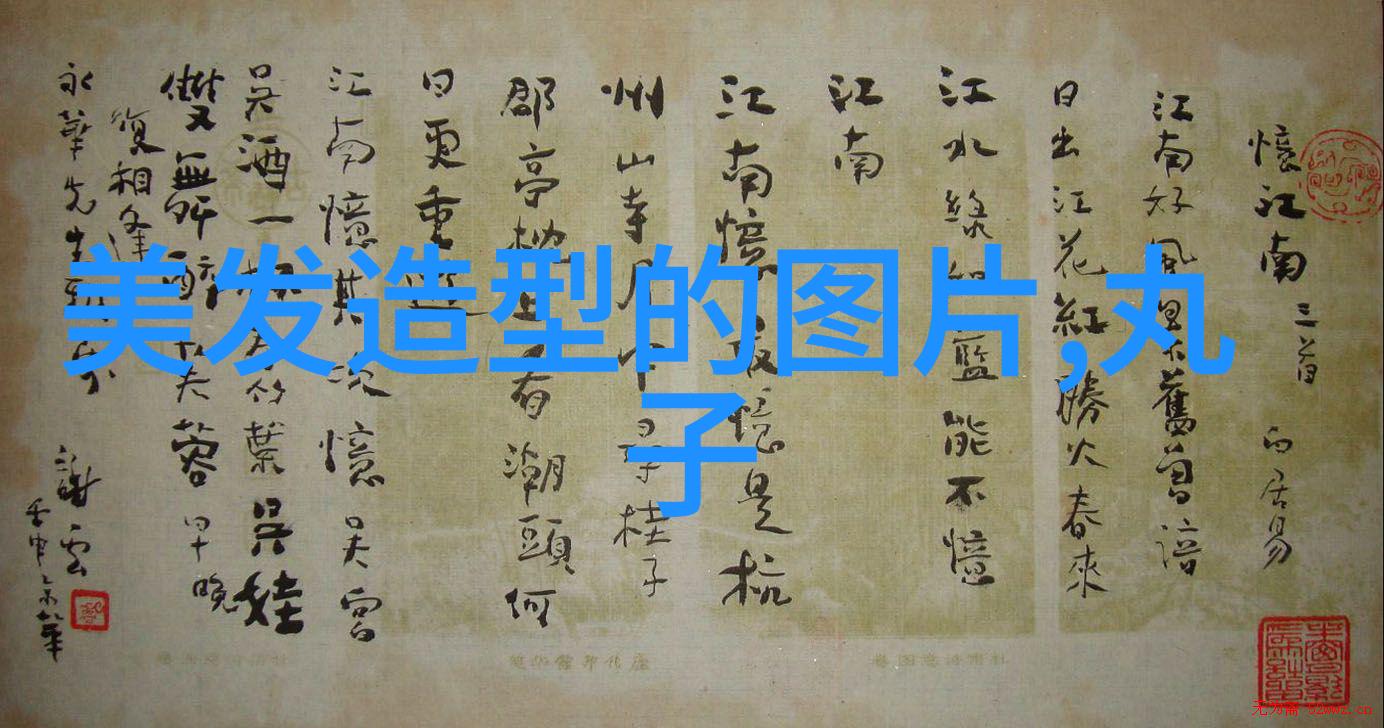 美发造型的图片,丸
子
憶江南 三首 白居易
江南好風景舊曾諳
日出江花紅勝火春來
江水綠如藍能不憶
江南
江南憶最憶是杭
州山寺月中尋桂子
郡亭枕上看潮頭何
日更重遊
江南憶其次憶吳宮
吳酒一杯春竹葉吳娃
雙舞醉芙蓉早晚
復相逢
永華先生
謝雲